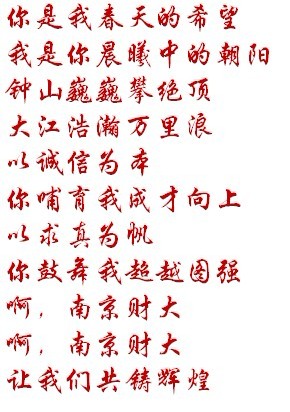 你是我春天的希望
我是你晨曦中的朝阳
钟山巍巍攀绝顶
大江浩瀚万里浪
以诚信为本
你哺育我成才向上
以求真为帆
你鼓舞我超越图强
啊，南京财大
啊，南京财大
让我们共铸辉煌